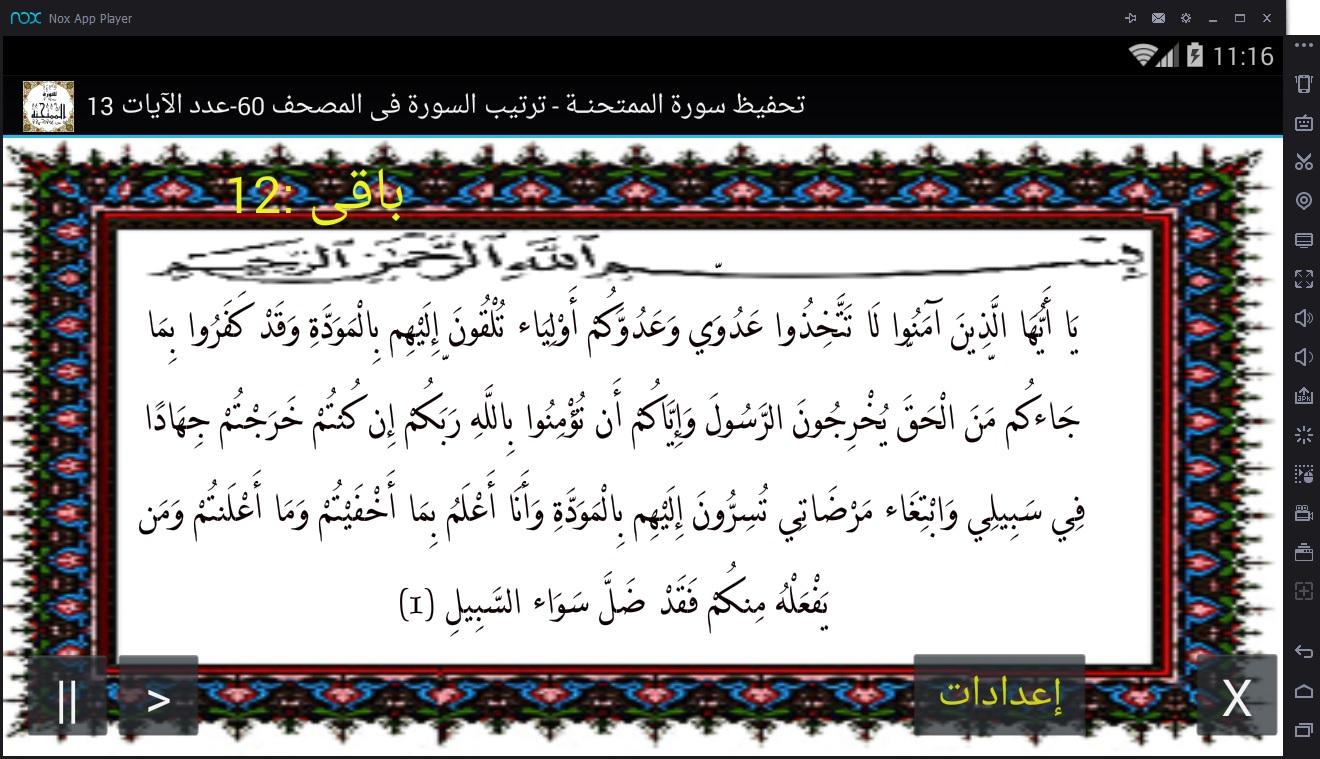 Nox App Player
11:16
تحفيظ سورة الممتحنـة - ترتيب السورة فى المصحف 60-عدد الآيات 13
باقى :12
بِسْـــمِ ٱللَّهِ ٱلرَّحْمَٰنِ ٱلرَّحِيمِ
يَا أَيُّهَا الَّذِينَ آمَنُوا لَا تَتَّخِذُوا عَدُوَي وَعَدُوَّكُمْ أَوْلِيَاء تُلْقُونَ إِلَيْهِم بِالْمَوَدَّةِ وَقَدْ كَفَرُوا بِمَا
جَاءكُم مَنَ الْحَقَ يُخْرِجُونَ الرَّسُولَ وَإِيَّاكُمْ أَن تُؤْمِنُوا بِاللَّهِ رَبَكُمْ إِن كُنتُمْ خَرَجْتُمْ جِهَادًا
فِي سَبِيلِي وَابْتِغَاء مَرْضَاتِي تُسِرُّونَ إِلَيْهِم بِالْمَوَدَّةِ وَأَنَا أَعْلَمُ بِمَا أَخْفَيْتُمْ وَمَا أَعْلَنتُمْ وَمَن
يَفْعَلْهُ مِنكُمْ فَقَدْ ضَلَّ سَوَاء السَّبِيلِ (1)
|| > إعدادات X